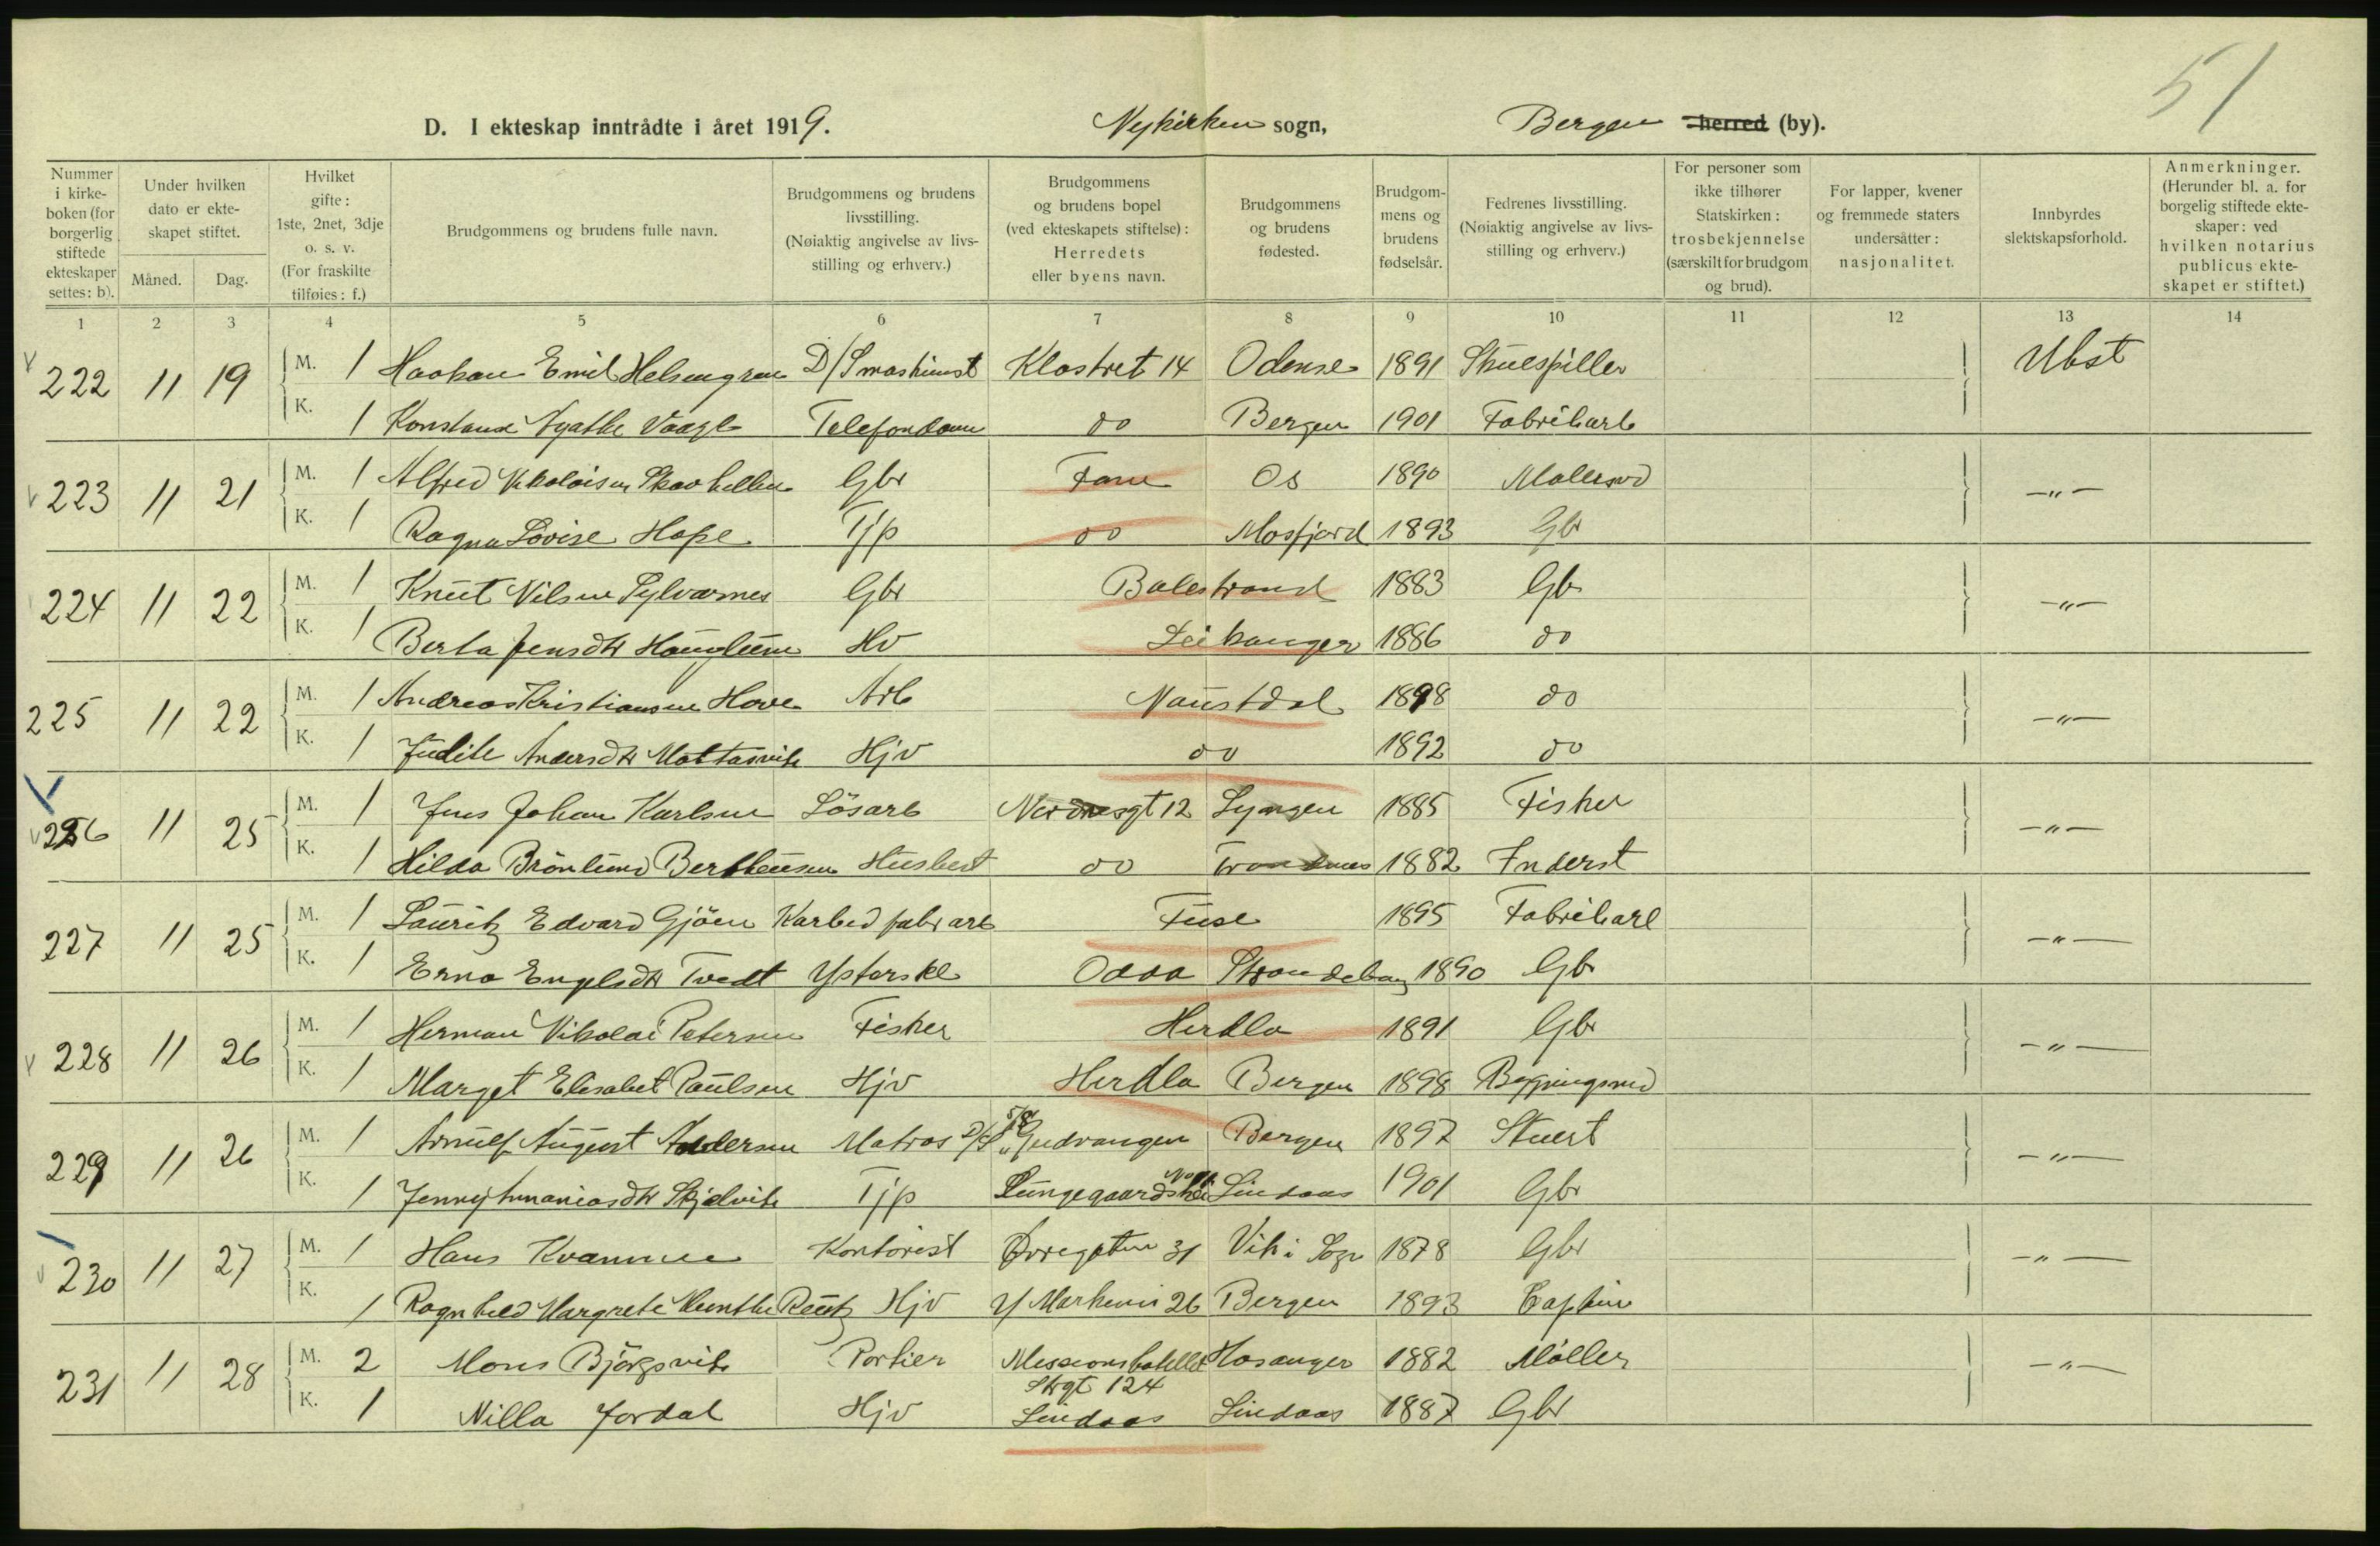 51
D. I ekteskap inntrådte i året 1919. Nykirken sogn, Bergen herred (by).
Nummer i kirkeboken (for borgerlig stiftede ekteskaper settes: b).
Under hvilken dato er ekteskapet stiftet.
Måned. Dag.
Hvilket gifte: 1ste, 2net, 3dje o. s. v. (For fraskilte tilføies: f.)
Brudgommens og brudens fulle navn.
Brudgommens og brudens livsstilling. (Nøiaktig angivelse av livsstilling og erhverv.)
Brudgommens og brudens bopel (ved ekteskapets stiftelse): Herredets eller byens navn.
Brudgommens og brudens fødested.
Brudgommens og brudens fødselsår.
Fedrenes livsstilling. (Nøiaktig angivelse av livsstilling og erhverv.)
For personer som ikke tilhører Statskirken: trosbekjennelse (særskilt for brudgom og brud).
For lapper, kvener og fremmede staters undersåtter: nasjonalitet.
Innbyrdes slektskapsforhold.
Anmerkninger. (Herunder bl. a. for borgelig stiftede ekteskaper: ved hvilken notarius publicus ekteskapet er stiftet.)
1 2 3 4 5 6 7 8 9 10 11 12 13 14
222 11 19 M. 1 Haakon Emil Helsengreen D/S maskinist Klostret 14 Odense 1891 Skuespiller Ubst
K. 1 Konstanse Agathe Vaage Telefondame do Bergen 1901 Fabrikarb
223 11 21 M. 1 Alfred Nikolaisen Skavhellen Gbr Fane Os 1890 -"-
K. 1 Ragna Lovise Hope Tjp do Mosfjord 1893 Gbr
224 11 22 M. 1 Knut Nilsen Sylvarnes Gbr Balestrand 1883 Gbr -"-
K. 1 Berta Jensdtr Hauglum Hv Leikanger 1886 do
225 11 22 M. 1 Andreas Kristiansen Hove Arb Naustdal 1898 do -"-
K. 1 Judite Andersdtr Hjv do 1892 do
226 11 25 M. 1 Jens Johan Karlsen Lösarb Nordnesgt 12 Lyngen 1885 Fisker -"-
K. 1 Hilda Brönlund Bertheusen Husbest do Trondenes 1882 Inderst
227 11 25 M. 1 Lauritz Edvard Gjöen Karbid fabr arb Fuse 1895 Fabrikarb -"-
K. 1 Erna Engelsdtr Tvedt Ysterske Odda Strandebarm 1890 Gbr
228 11 26 M. 1 Herman Nikolai Petersen Fisker Herdla 1891 Gbr -"-
K. 1 Marget Elisabet Paulsen Hjv Herdla Bergen 1898
229 11 26 M. 1 Arnulf August Andersen Matros D/S "Gudvangen Bergen 1897 Stuert -"-
K. 1 Jenny Skjelvik Tjp Lungegaards Lindaas 1901 Gbr
230 11 27 M. 1 Hans Kvamme Kontorist Øvregaten 31 Vik i Sogn 1878 Gbr -"-
K. 1 Ragnhild Margrete Munthe Reutz Hjv Y Markevei 26 Bergen 1893 Captein
231 11 28 M. 2 Mons Björgsvik Portier Missionshotellet Hosanger 1882 Möller -"-
Strgt 124
K. 1 Nilla Jordal Hjv Lindaas Lindaas 1887 Gbr